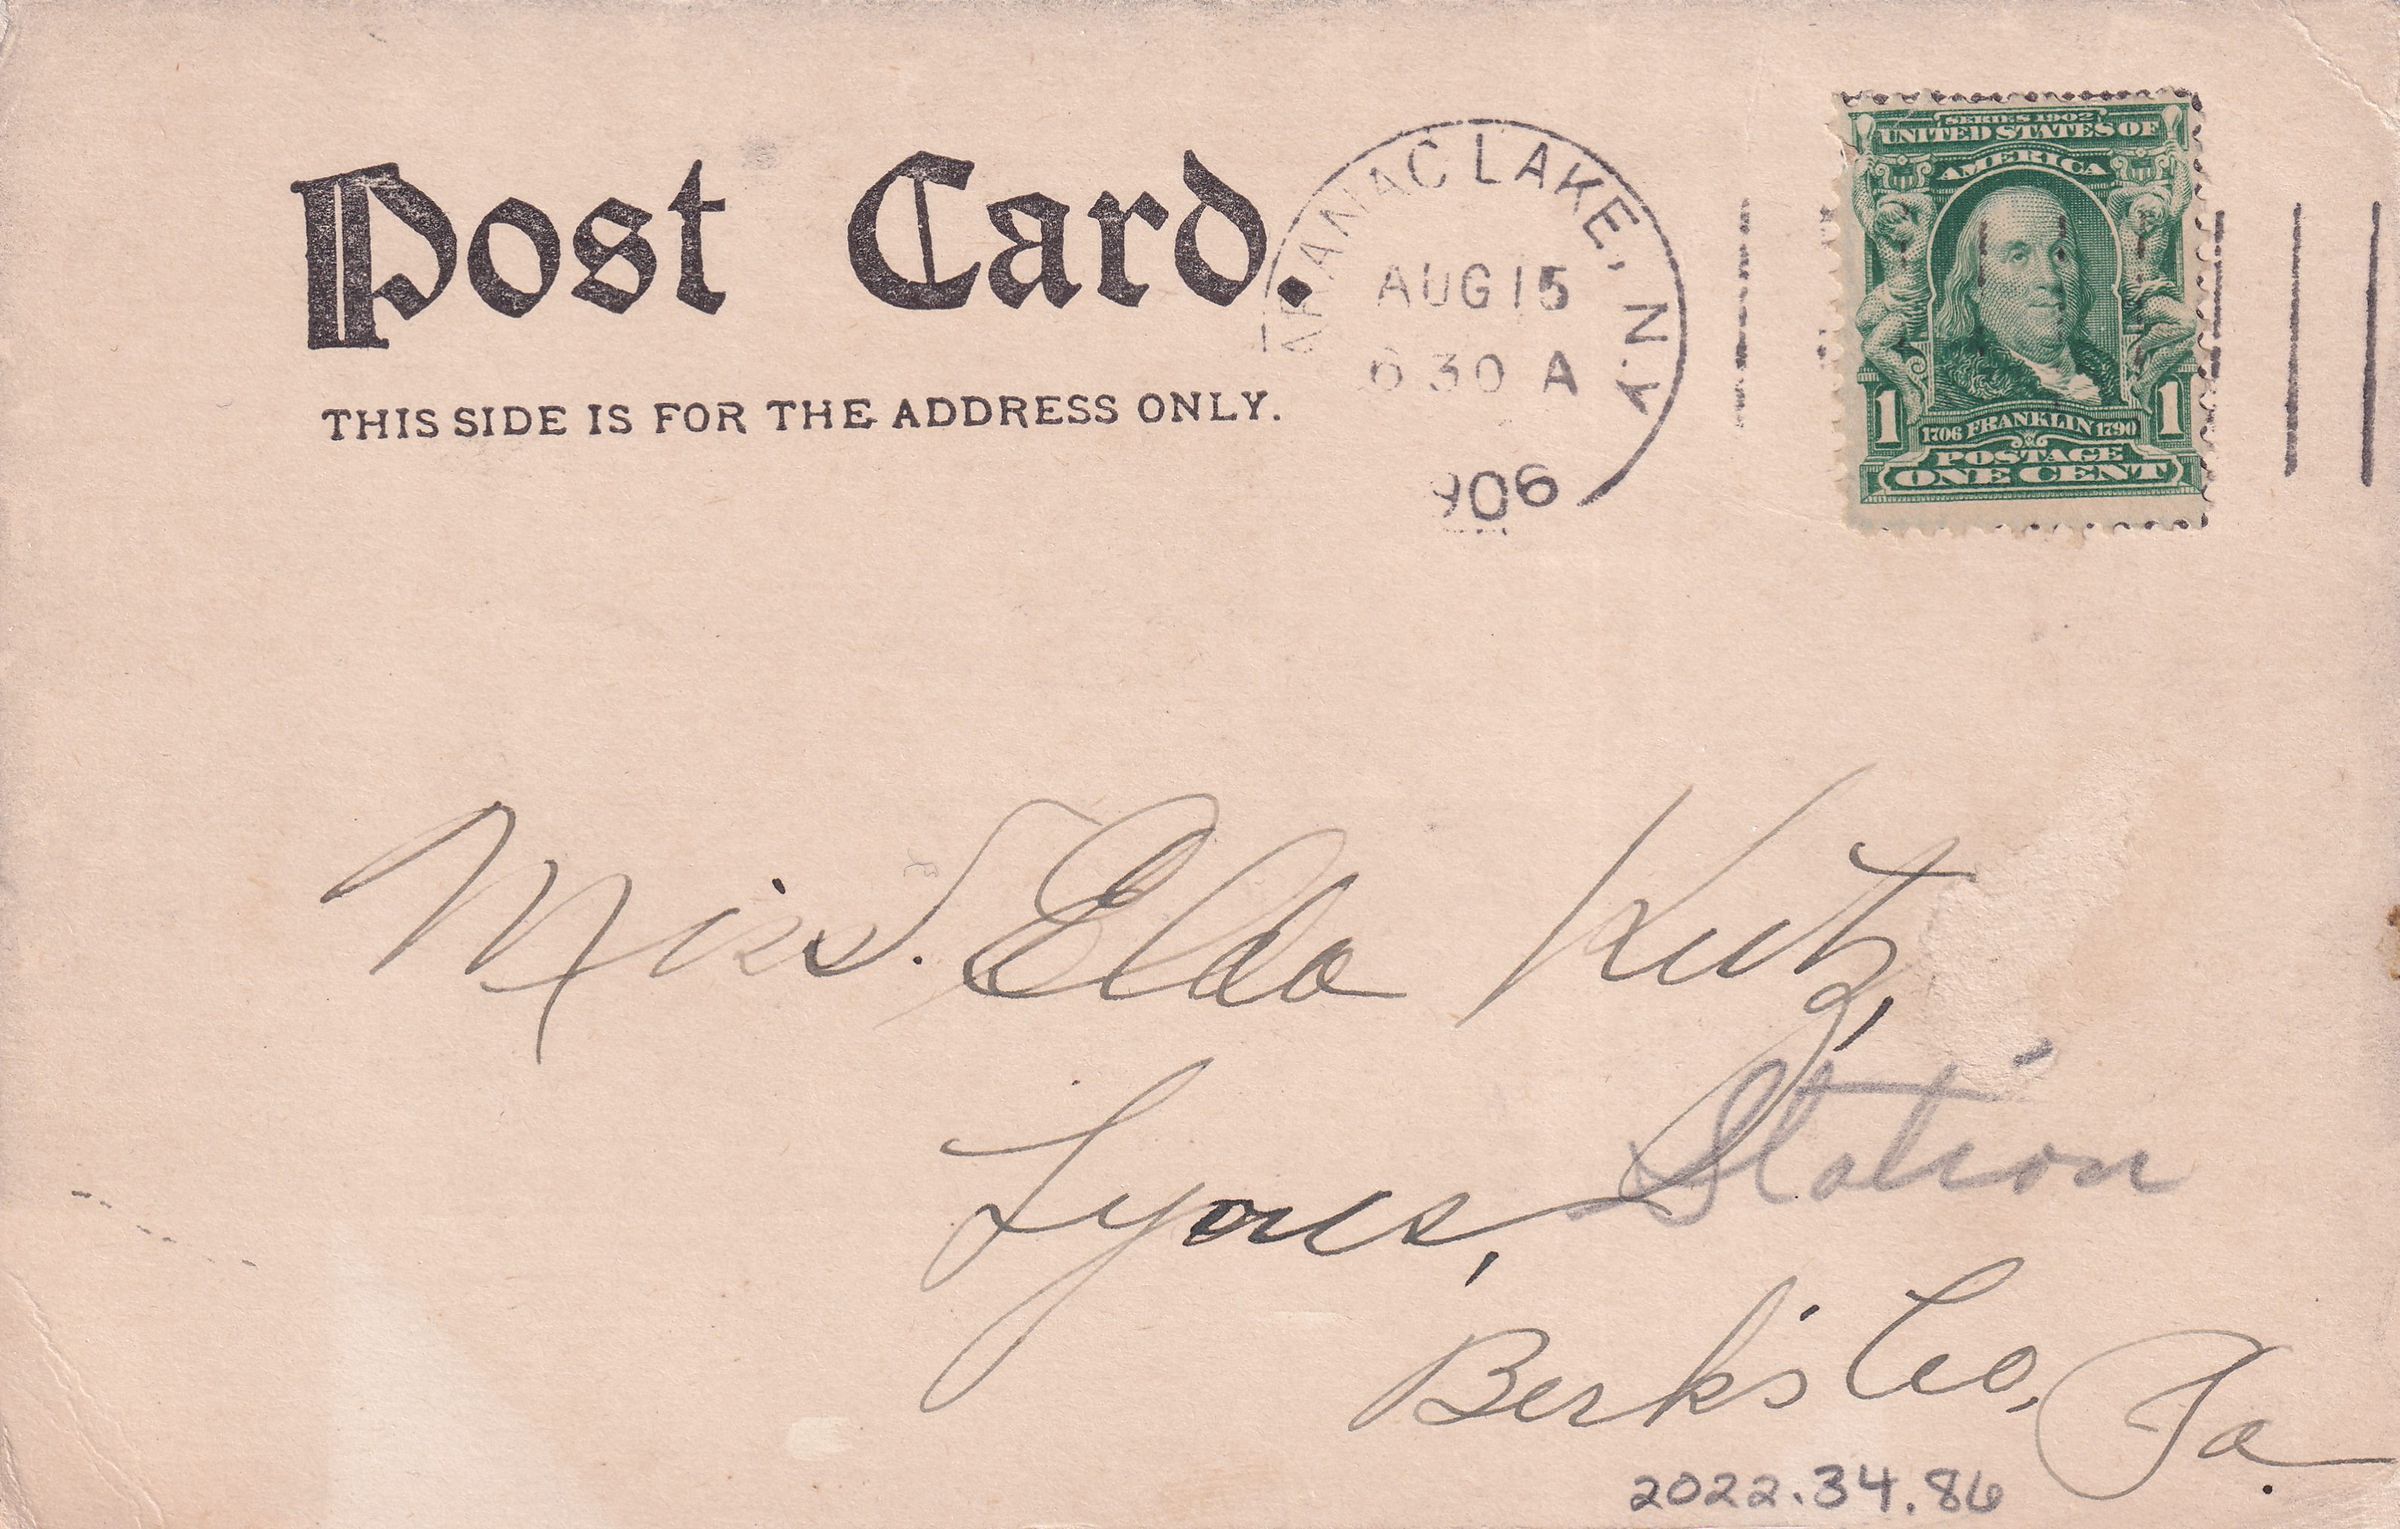 Post Card.
THIS SIDE IS FOR THE ADDRESS ONLY.
ARANAC LAKE, N.Y.
AUG 15
6 30 A
906
SERIES 1902
UNITED STATES OF
AMERICA
1 1706 FRANKLIN 1790 1
POSTAGE
ONE CENT
Miss. Elda Kutz,
Lyons, Station
Berks Co, Pa.
2022.34.86